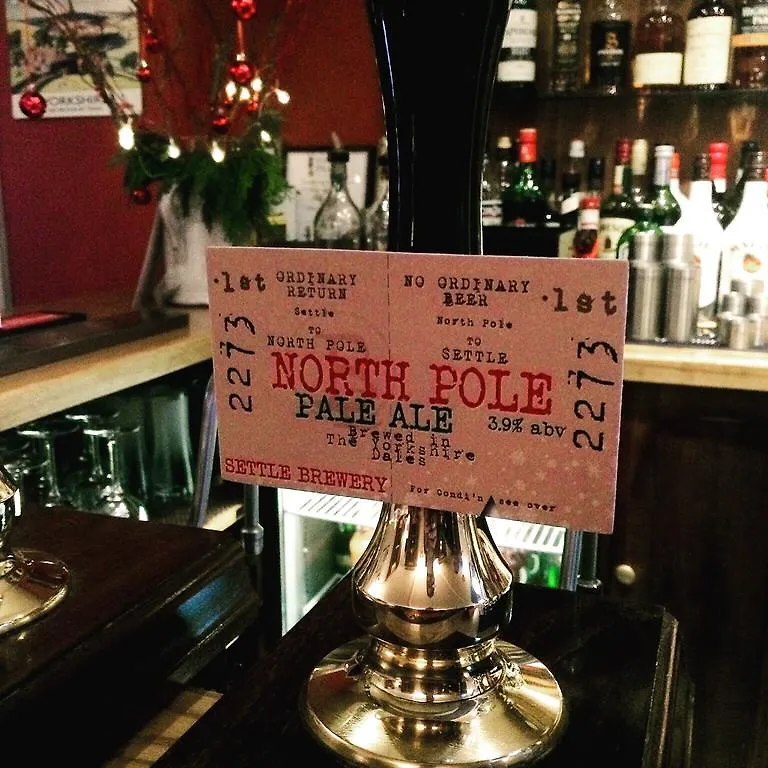 YORKSHIRE
·1st ORDINARY
RETURN
Settle
TO
NORTH POLE
NO ORDINARY
BEER
·1st
North Pole
TO
SETTLE
2273
2273
NORTH POLE
PALE ALE
3.9% abv
Brewed in
The Yorkshire
Dales
SETTLE BREWERY
For Condi'n see over